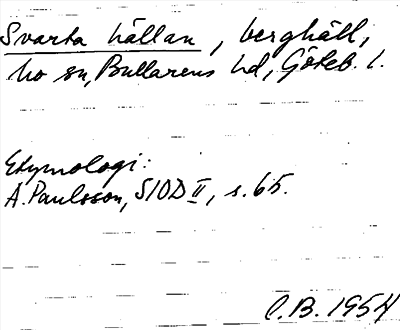 Svarta hällan, berghäll,
Mo sn, Bullarens hd, Göteb. l.
Etymologi:
A. Paulsson, SIOD II, s. 65.
C.B. 1954